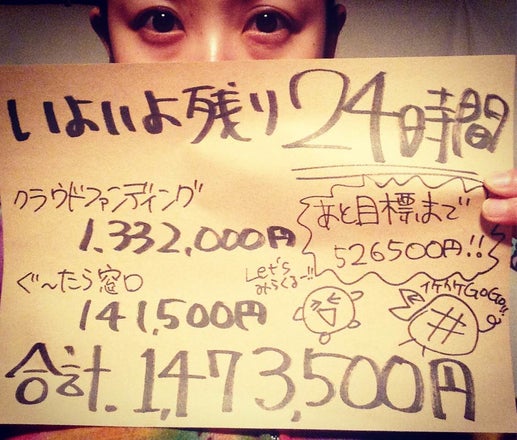 いよいよ残り24時間
クラウドファンディング
1.332,000円
あと目標まで
526500円!!
ぐ〜たら窓口
141,500円
Let's
みらくるー!!
イケイケGOGO!!
合計.1,473,500円